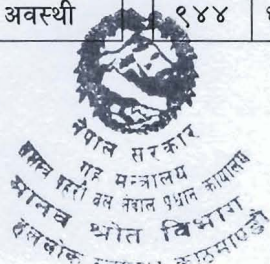 अवस्थी ९४४
नेपाल सरकार
गृह मन्त्रालय
सशस्त्र प्रहरी बल नेपाल प्रधान कार्यालय
मानव श्रोत विभाग
हलचोक काठमाण्डौ